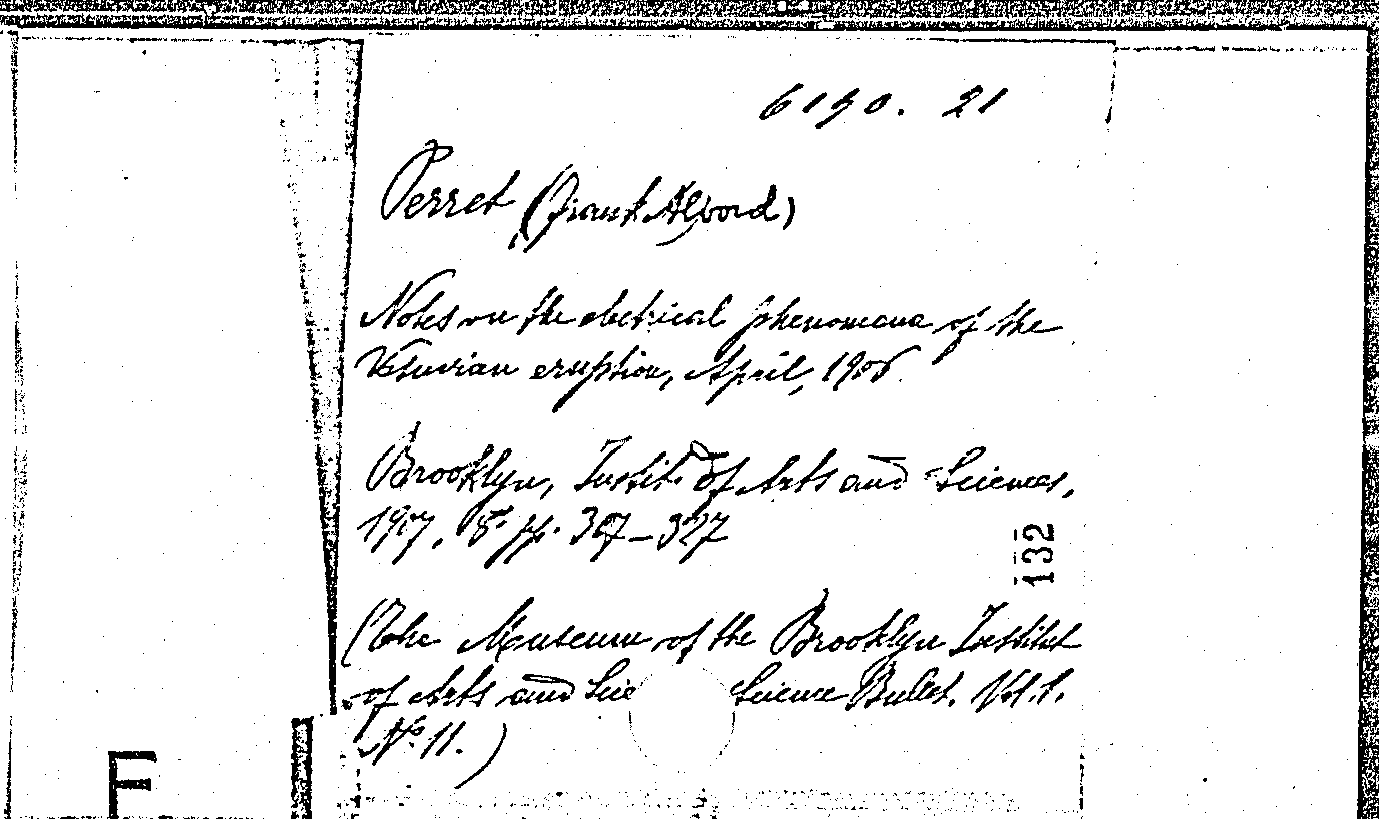 6190. 21
Perret (Frank Alvord)
Notes on the electrical phenomena of the
Vesuvian eruption, April, 1906.
Brooklyn, Instit. of Arts and Sciences,
1907, 8° pp. 307-327
132
(The Museum of the Brooklyn Institut
of Arts and Scie Science Bullet. Vol. 1.
N° 11.)
E